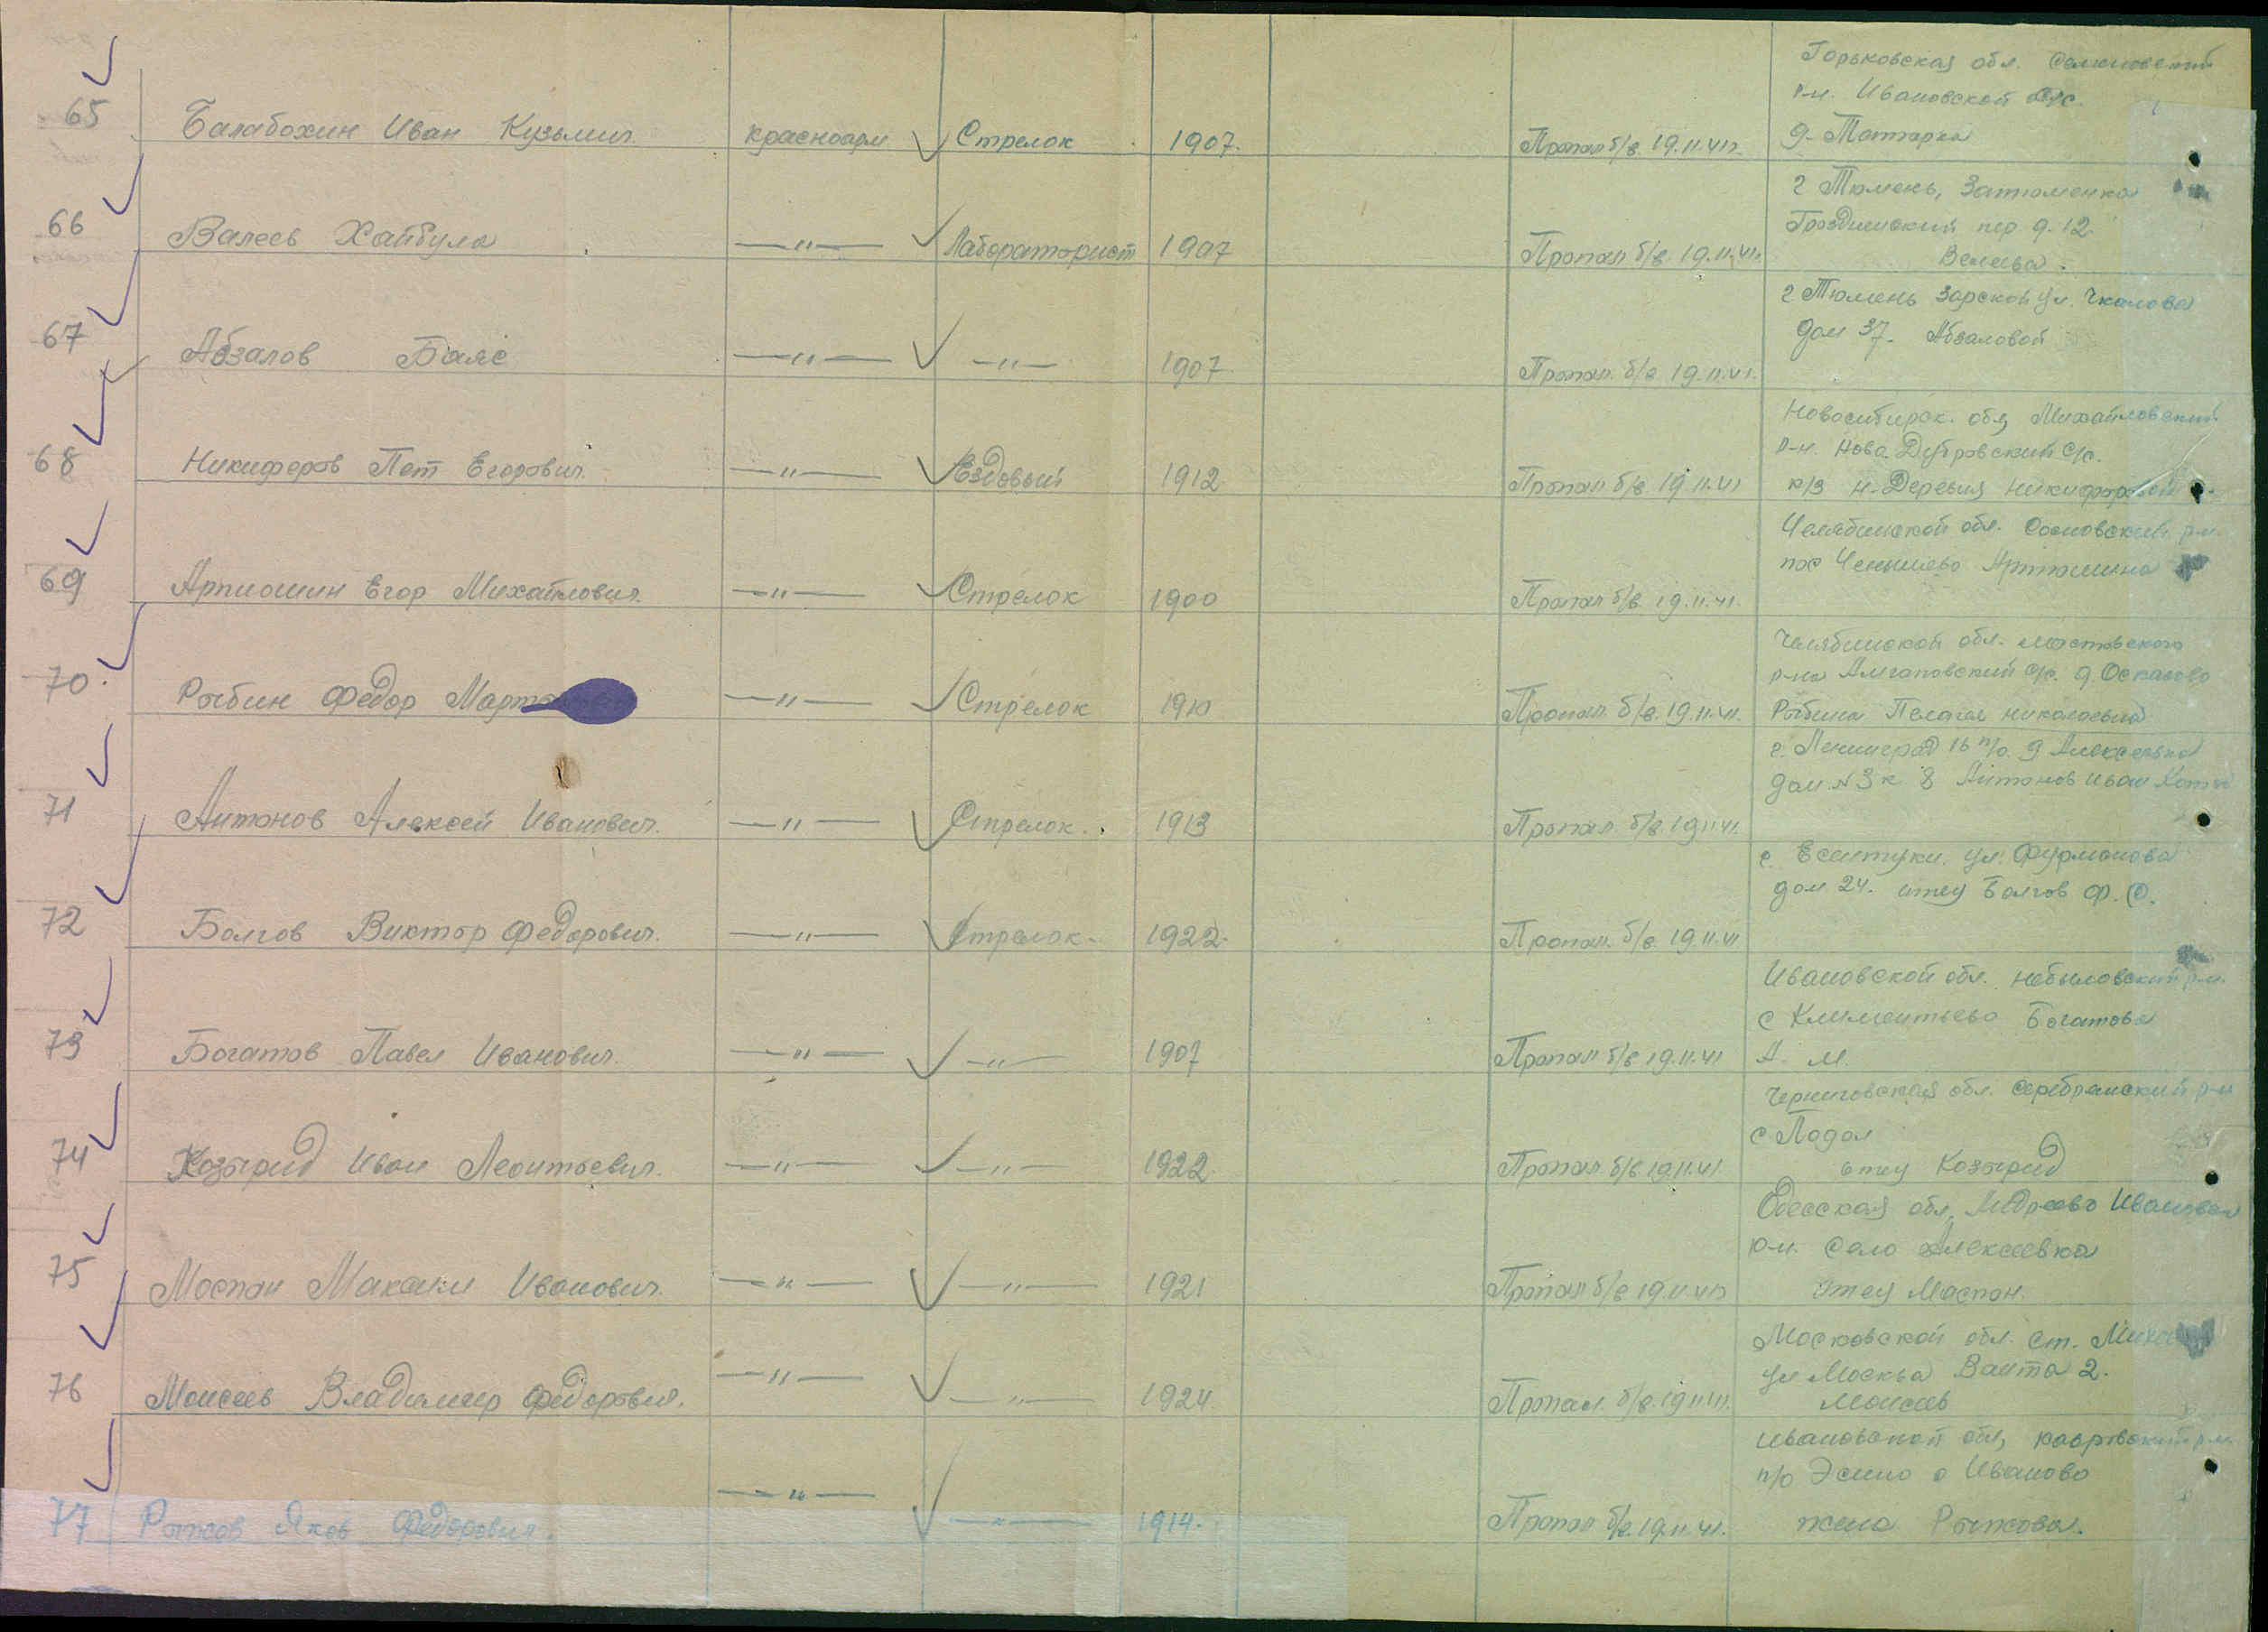 Горьковская обл.
р-н. Ивановской с/с.
65 Балабохин Иван Кузьмич. Красноарм Стрелок 1907. Пропал б/в. 19.11.41г.
г Тюмень, Затюменка
пер д. 12.
66 Валеев Хайбула —"— Лабораторист 1907 Пропал б/в. 19.11.41г.
г Тюмень Зарекой ул. Чкалова
дом 37. Абзаловой
67 Абзалов —"— —"— 1907 Пропал. б/в 19.11.41.
Новосибирск. обл, Михайловский
р-н. Ново Дубровский с/с.
68 Никиферов Пет Егорович. —"— Ездовый 1912 Пропал б/в 19.11.41 к/з Н-Деревня
Челябинской обл. Сосновский р-н.
пос Артюшина
69 Артюшин Егор Михайлович. —"— Стрелок 1900 Пропал б/в 19.11.41.
Челябинской обл.
р-на с/с. д
70. Рыбин Федор —"— Стрелок 1910 Пропал. б/в. 19.11.41. Рыбина Пелагея Николаевна
г. Ленинград 16 п/о. д Алексеевка
дом N 3 к 8 Антонов Иван
71 Антонов Алексей Иванович. —"— Стрелок. 1913 Пропал б/в. 19.11.41.
г. Есентуки. ул. Фурманова
дом 24. отец Болгов Ф. С.
72 Болгов Виктор Федорович. —"— Стрелок. 1922. Пропал. б/в. 19.11.41
Ивановской обл. Небыловский р-н.
с Климентьево Богатова
73 Богатов Павел Иванович. —"— —"— 1907 Пропал б/в 19.11.41 А. М.
Черниговская обл. Серебрянский р-н
с
74 Козырид Иван Леонтьевич. —"— —"— 1922. Пропал б/в 19.11.41. отец Козырид
Одесская обл, Иванован
р-н. Село Алексеевка
75 Моспан Максим Иванович. —"— —"— 1921 Пропал б/в 19.11.41г отец Моспан.
Московской обл. ст.
ул Москва 2.
76 Моисеев Владимир Федорович. —"— —"— 1924 Пропал. б/в. 19.11.41. Моисеев
Ивановской обл, р-н
п/о Эсино Иваново
77 Рыжов Яков Федорович. —"— —"— 1914. Пропал б/в. 19.11.41. жена Рыжова.